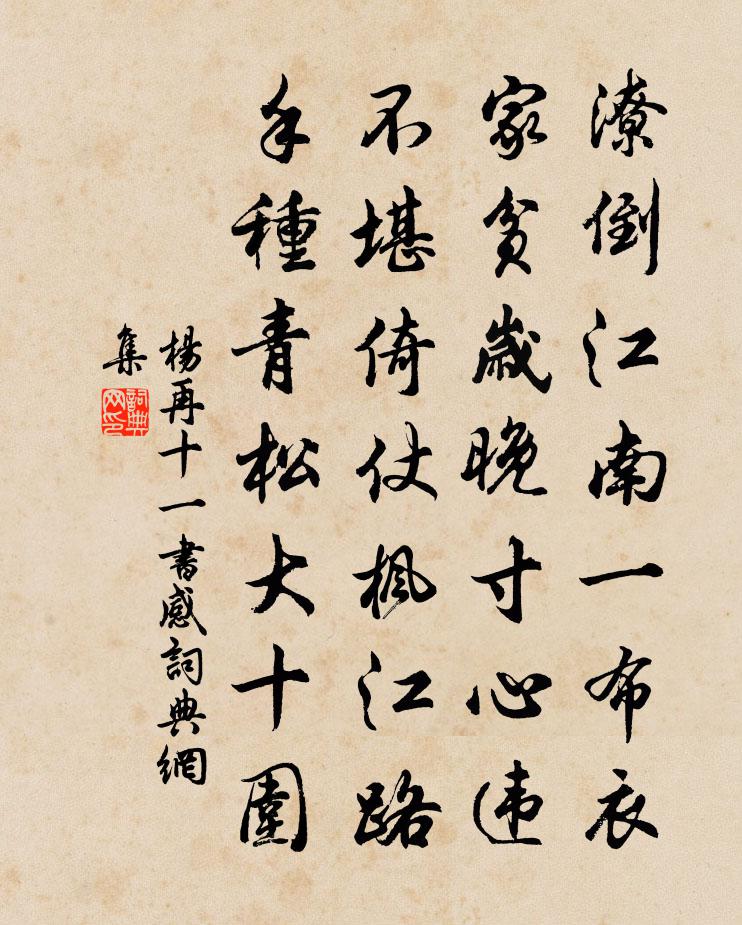 潦倒江南一布衣
家貧歲晚寸心违
不堪倚仗楓江路
手種青松大十圍
楊再十一書感詞典網
集
詞典
网印